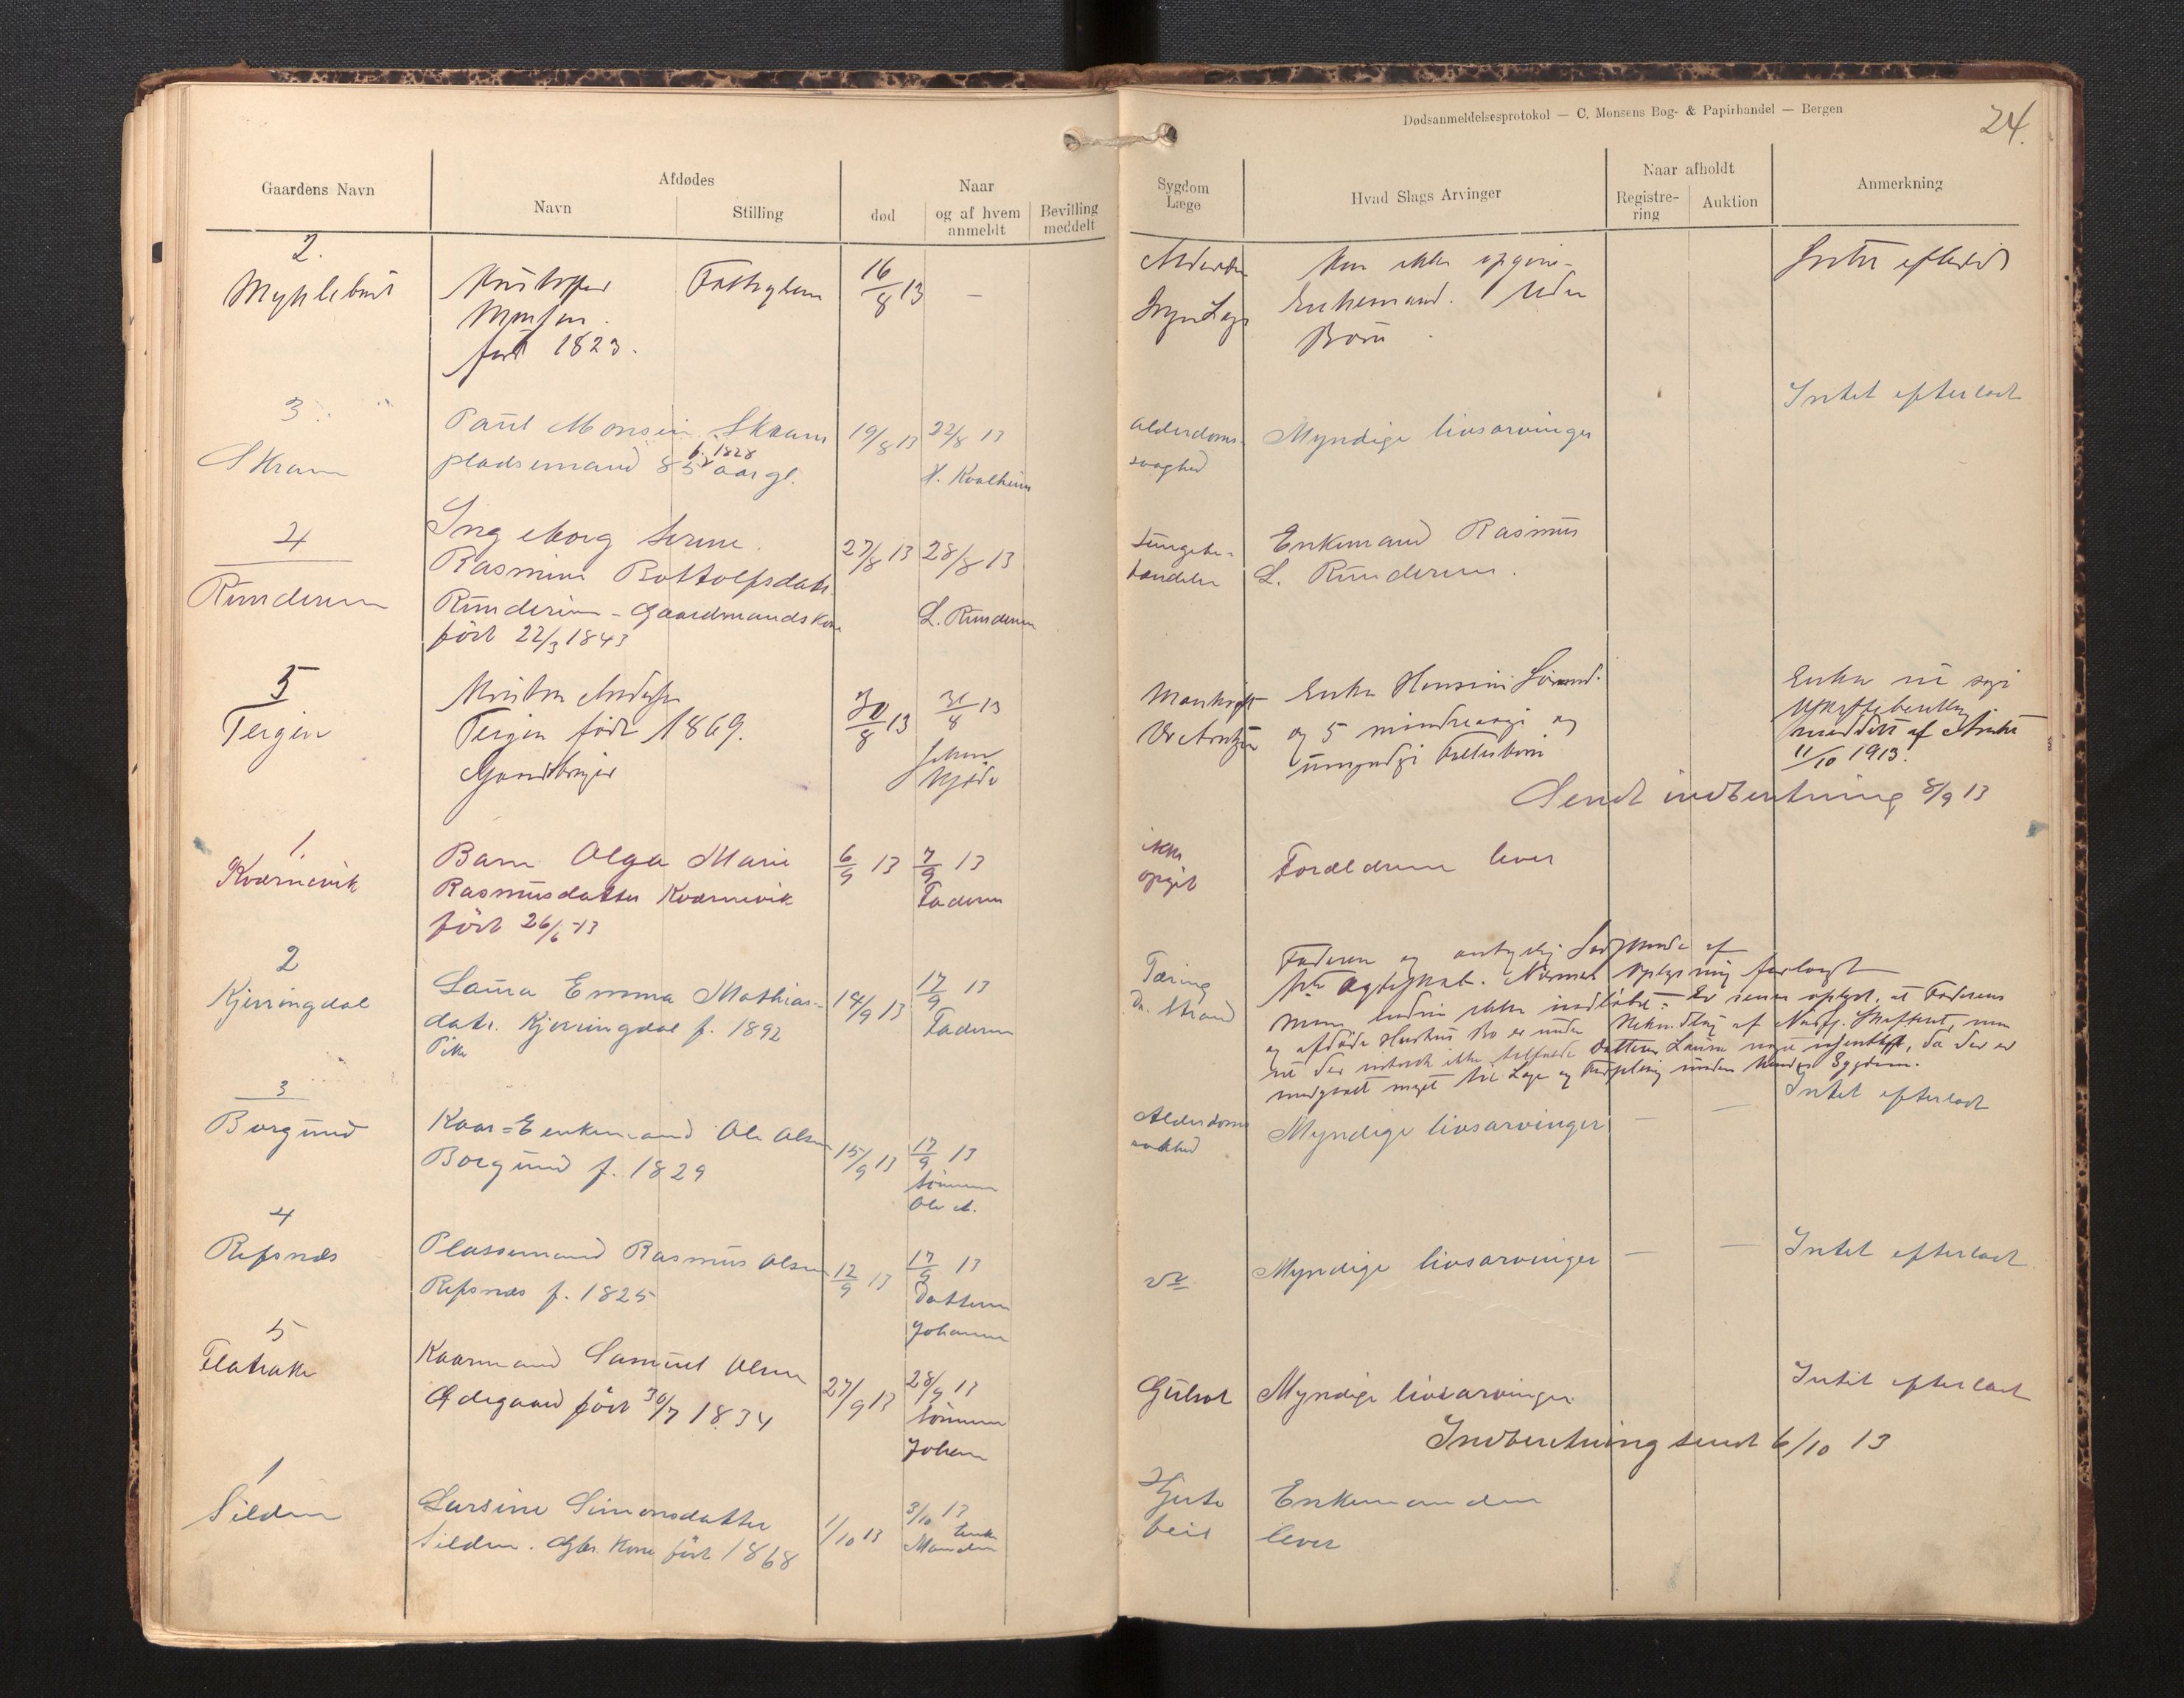 Dødsanmeldelsesprotokol — C. Monsens Bog- & Papirhandel — Bergen
24.
Gaardens Navn
Afdødes
Navn
Stilling
død
Naar
og af hvem
anmeldt
Bevilling
meddelt
Sygdom
Læge
Hvad Slags Arvinger
Naar afholdt
Registre-
ring
Auktion
Anmerkning
2.
Myklebust
Monsen.
født 1823.
16/8 13
—
Kan ikke opgives
Enkemand. Uden
Børn
Intet efterladt
3
Skram
Paul Monsen Skram
f. 1828
pladsemand 85 aar gl.
19/8 13
22/8 13
H. Kvalheim
alderdoms-
svaghed
Myndige livsarvinger
Intet efterladt
4
Rundereim
Ingeborg Serine
Rasmine Bottolfsdatr.
Rundereim - Gaardmandskone
født 22/3 1843
27/8 13
28/8 13
L. Runderem
Lungebe-
tændelse
Enkemand Rasmus
L. Runderem.
5
Teigen
Teigen født 1869.
Gaardbruger
30/8 13
31/8 13
Enke Hansine
og 5 mindreaarige og
umyndige Fællesbørn
Enken i
meddelt af
11/10 1913.
Sendt indberetning 8/9 13
1.
Kværnevik
Barn Olga Marie
Rasmusdatter Kværnevik
født 26/6 -13
6/9 13
7/9 13
Faderen
ikke
opgit
Forældrene lever
2
Kjerringdal
Laura Emma Mathias-
datr. Kjerringdal f. 1892
Pike
14/9 13
17/9 13
Faderen
Tæring
Dr. Strand
Faderen og
af
Ægteskab. Nærmere Oplysning forlangt
men endnu ikke indløbet. Er senere oplyst, at Faderens
og afdøde Hustrus Bo er under Behandling af
Datteren Laura noget da der er
medgaaet meget til Læge og under hendes Sygdom.
3
Borgund
Kaar=Enkemand Ole Olsen
Borgund f. 1829
15/9 13
17/9 13
Sønnen
Ole A.
Alderdoms
Myndige livsarvinger
—
—
Intet efterladt
4
Refsnæs
Plassemand Rasmus Olsen
Refsnæs f. 1825
12/9 13
17/9 13
Datteren
Johanne
Myndige livsarvinger
—
—
Intet efterladt
5
Flatrake
Kaarmand Samuel Olsen
Ødegaard født 30/7 1834
27/9 13
28/9 13
Sønnen
Johan
Gulsot
Myndige livsarvinger.
Intet efterladt
Indberetning sendt 6/10 13
1
Silden
Larsine Simonsdatter
Silden. Gbr. Kone født 1868
1/10 13
3/10 13
Enke
Manden
Hjerte
feil
Enkemanden
lever